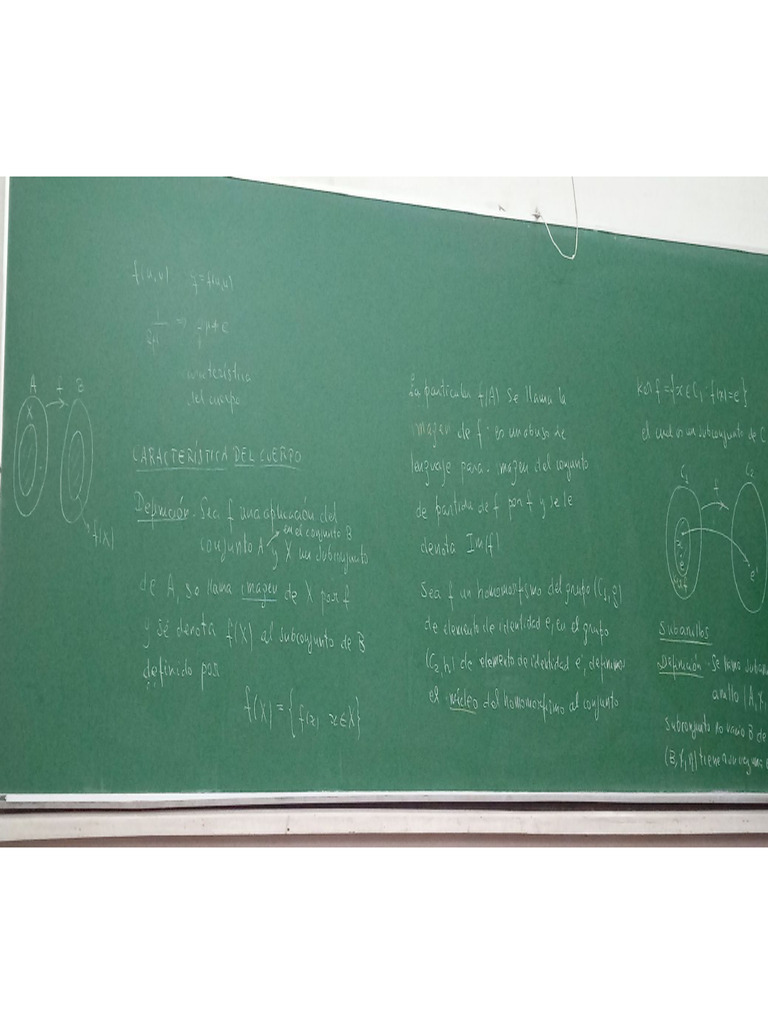 f(u,v) y=f(u,v)
característica
del cuerpo
A f B
X
f(X)
CARACTERÍSTICA DEL CUERPO
Definición.- Sea f una aplicación del
en el conjunto B
conjunto A y X un subconjunto
de A, se llama imagen de X por f
y se denota f(X) al subconjunto de B
definido por
f(X) = {f(x), x∈X}
La particular f(A) se llama la
imagen de f: es un abuso de
lenguaje para imagen del conjunto
de partida de f por f y se le
denota Im(f)
Sea f un homomorfismo del grupo (C₁, g)
de elemento de identidad e, en el grupo
(C₂, h) de elemento de identidad e', definimos
el núcleo del homomorfismo al conjunto
Ker f = {x∈C₁: f(x)=e'}
el cual es un subconjunto de C
C₁ f C₂
e'
Subanillos
Definición.- Se llama
anillo (A,
subconjunto no vacío B de